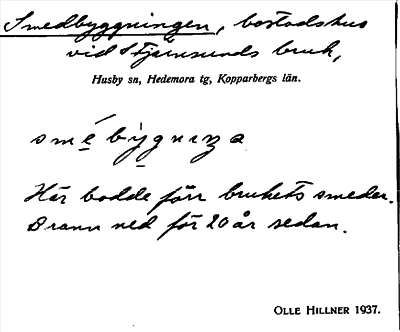 Smedbyggningen, bostadshus
vid Stjärnsunds bruk,
Husby sn, Hedemora tg, Kopparbergs län.
smé bỳgnıŋa
Här bodde förr brukets smeder.
Brann ned för 20 år sedan.
OLLE HILLNER 1937.